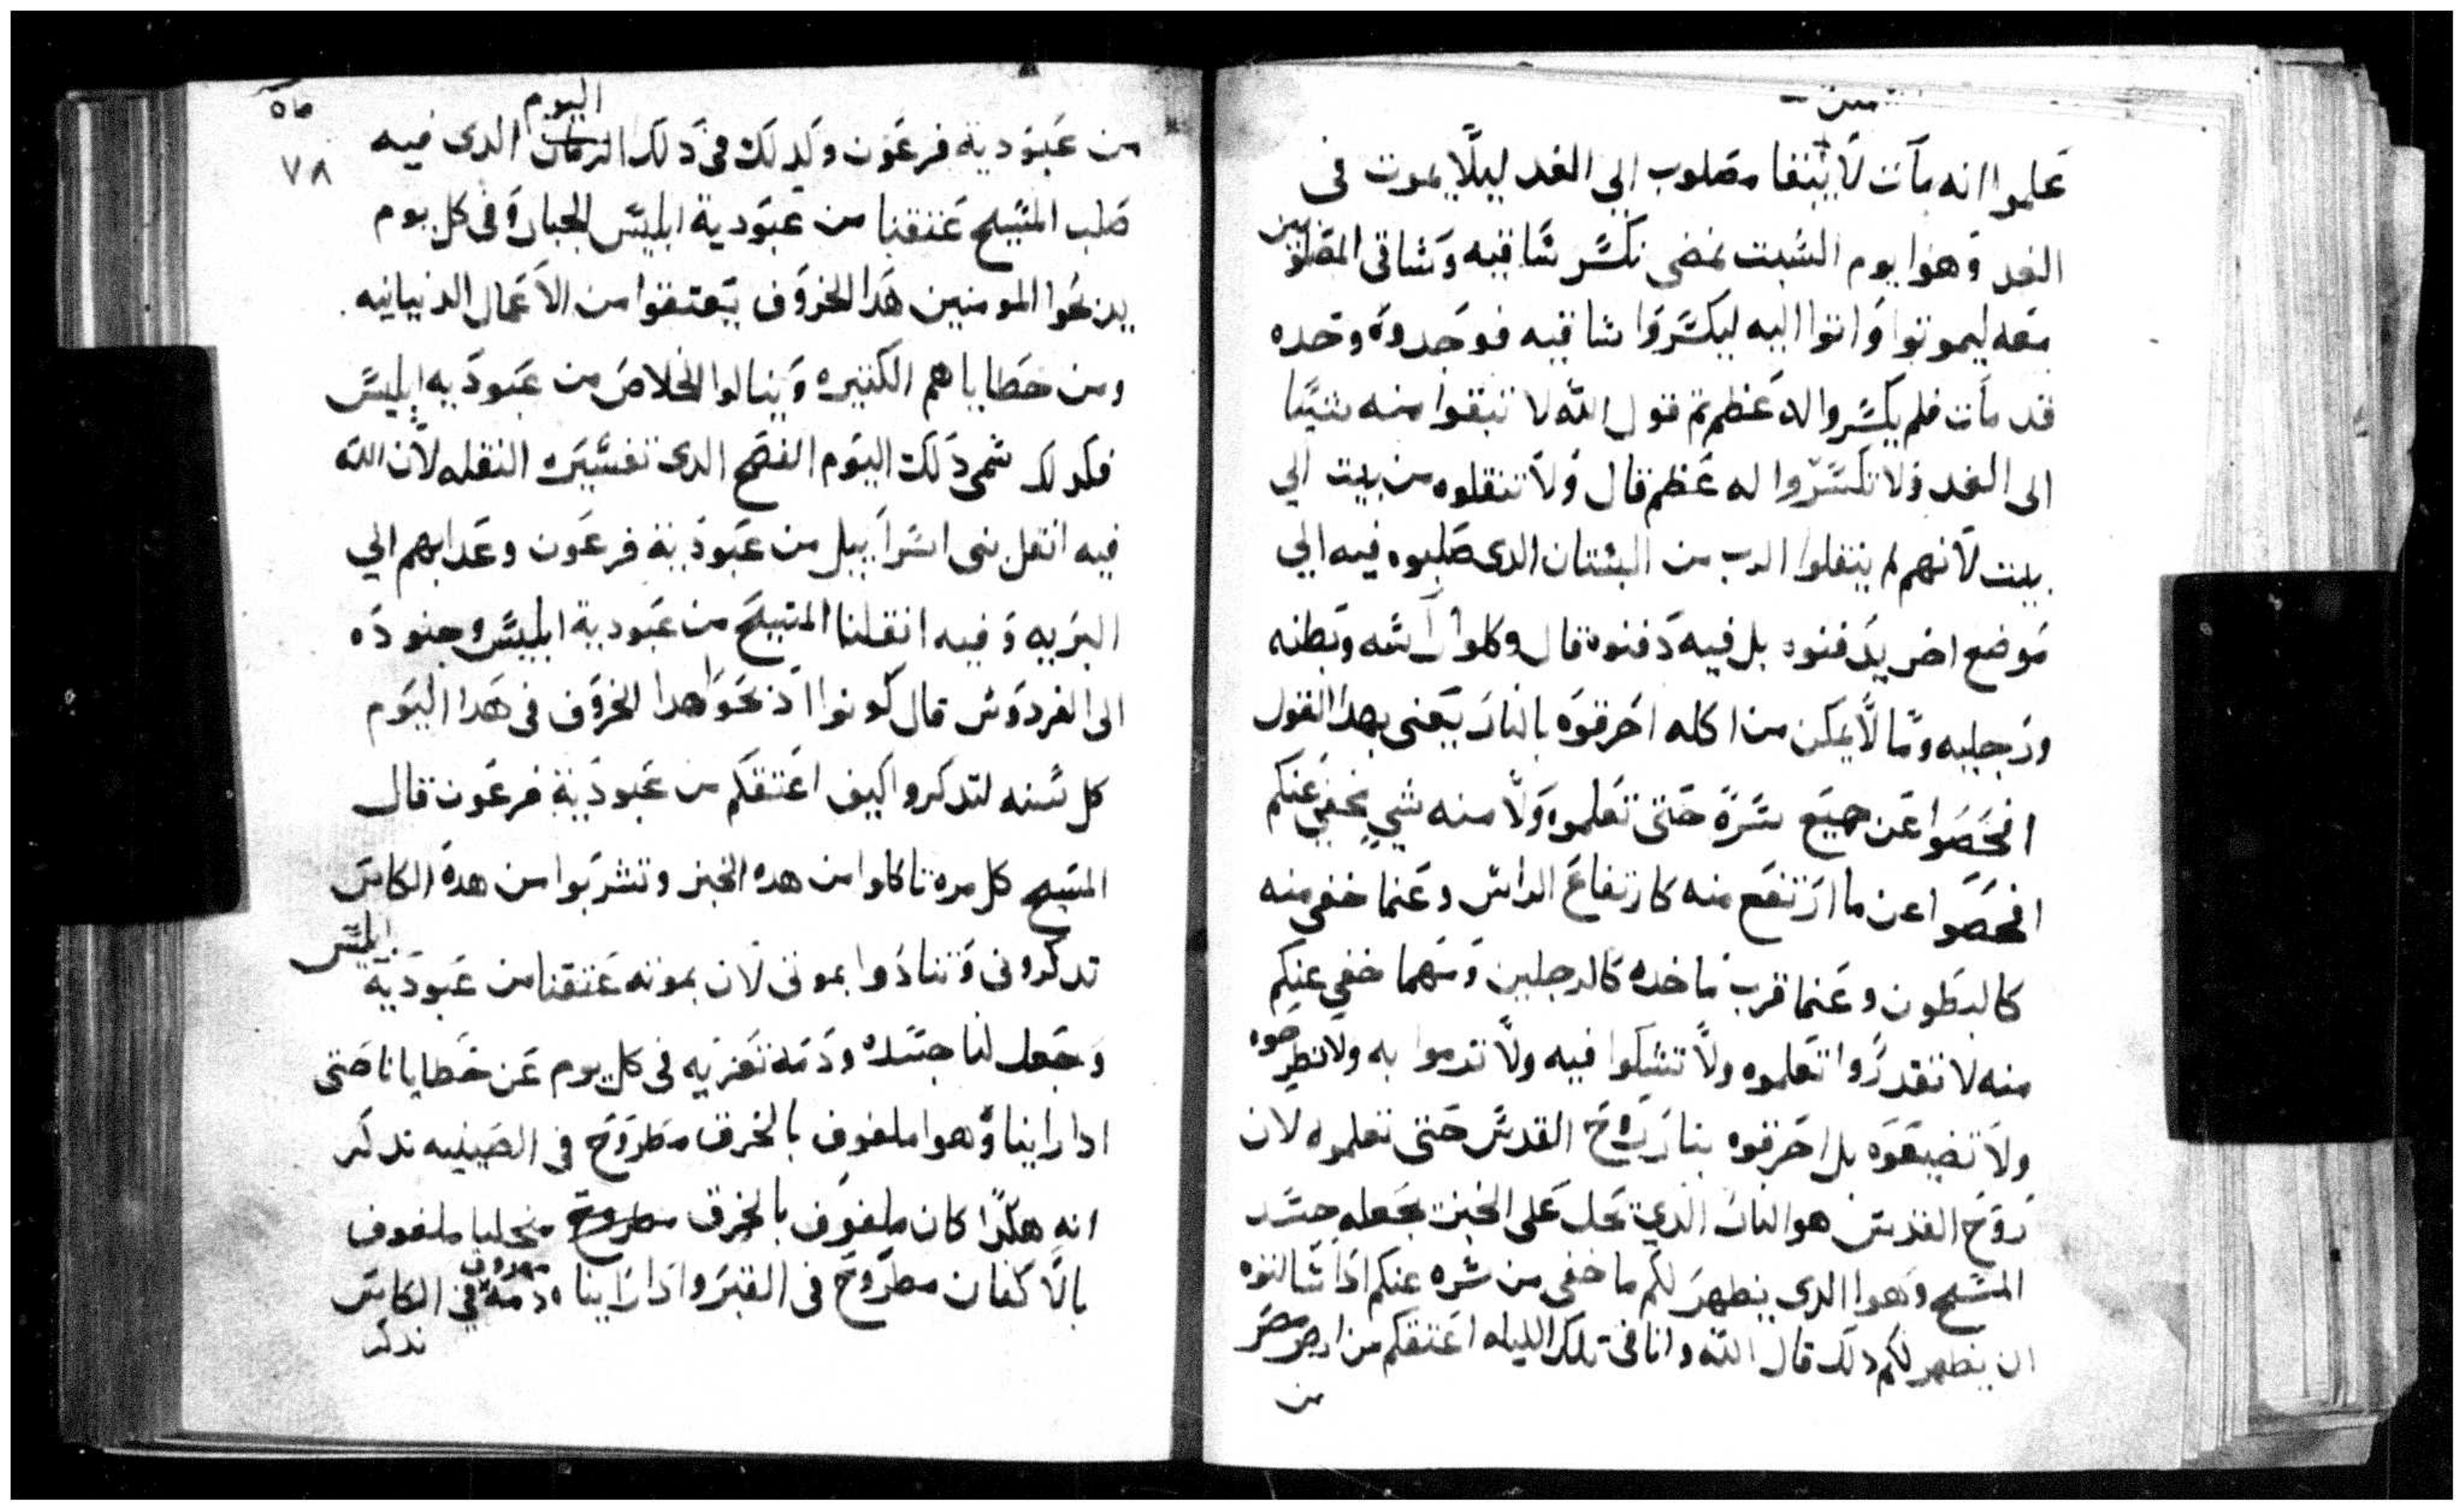 علموا انه مات لا يبقا مصلوب الي الغد ليلا يموت في
الغد وهوا يوم السبت نمضي نكسر ساقيه وساقي المصلوبين
معه ليموتوا واتوا اليه ليكسروا ساقيه فوجدوه وحده
قد مات فلم يكسروا له عظم تم قول الله لا تبقوا منه شيا
الى الغد ولا تكسروا له عظم قال ولا تنقلوه من بيت الي
بيت لانهم لم ينقلوا الرب من البستان الدى صلبوه فيه الي
موضع اخر يدفنوه بل فيه دفنوه قال وكلوا راسه وبطنه
ورجليه وما لا يمكن من اكله احرقوه بالنار يعني بهدا القول
افحصوا عن جميع سره حتى تعلموه ولا منه شي يخفي عنكم
افحصوا عن ما ارتفع منه كارتفاع الراس وعنما خفي منه
كالبطون وعنما قرب ماخده كالرجلين ومهما خفي عنكم
منه لا تقدروا تعلموه ولا تشكوا فيه ولا تدموا به ولا تطرحوه
ولا تضيعوه بل احرقوه بنار روح القدس حتى تعلموه لان
روح القدس هو النار الدي تحل على الخبز تجعله جسد
المسيح وهوا الدي يظهر لكم ما خفي من سره عنكم ادا سالتوه
ان يظهر لكم دلك قال الله وانا في تلك الليله اعتقكم من ارض مصر
من
٧٨
اليوم
من عبودية فرعون وكدلك في دلك الزمان الدى فيه
صلب المسيح عتقنا من عبودية ابليس الجباره في كل يوم
يدبحوا المومنين هدا الخروف يتعتقوا من الاعمال الدنيانيه
ومن خطاياهم الكتيره وينالوا الخلاص من عبوديه ابليس
فكدلك سمي دلك اليوم الفصح الدى تفسيره النقله لان الله
فيه انقل بني اسراييل من عبودية فرعون وعدابهم الي
البريه وفيه انقلنا المسيح من عبودية ابليس وجنوده
الى الفردوس قال كونوا ادبحوا هدا الخروف في هدا اليوم
كل سنه لتدكروا كيف اعتقكم من عبودية فرعون قال
المسيح كل مره تاكلوا من هده الخبز وتشربوا من هده الكاس
تدكروني وتنادوا بموتي لان بموته عتقنا من عبودية ابليس
وجعل لنا جسده ودمه تعزيه في كل يوم عن خطايانا حتى
ادا راينا وهوا ملفوف بالخرق مطروح في الصينيه ندكر
انه هكدا كان ملفوف بالخرق مطروح ملفوف
بالاكفان مطروح في القبر وادا راينا دمه مهروق في الكاس
ندكر